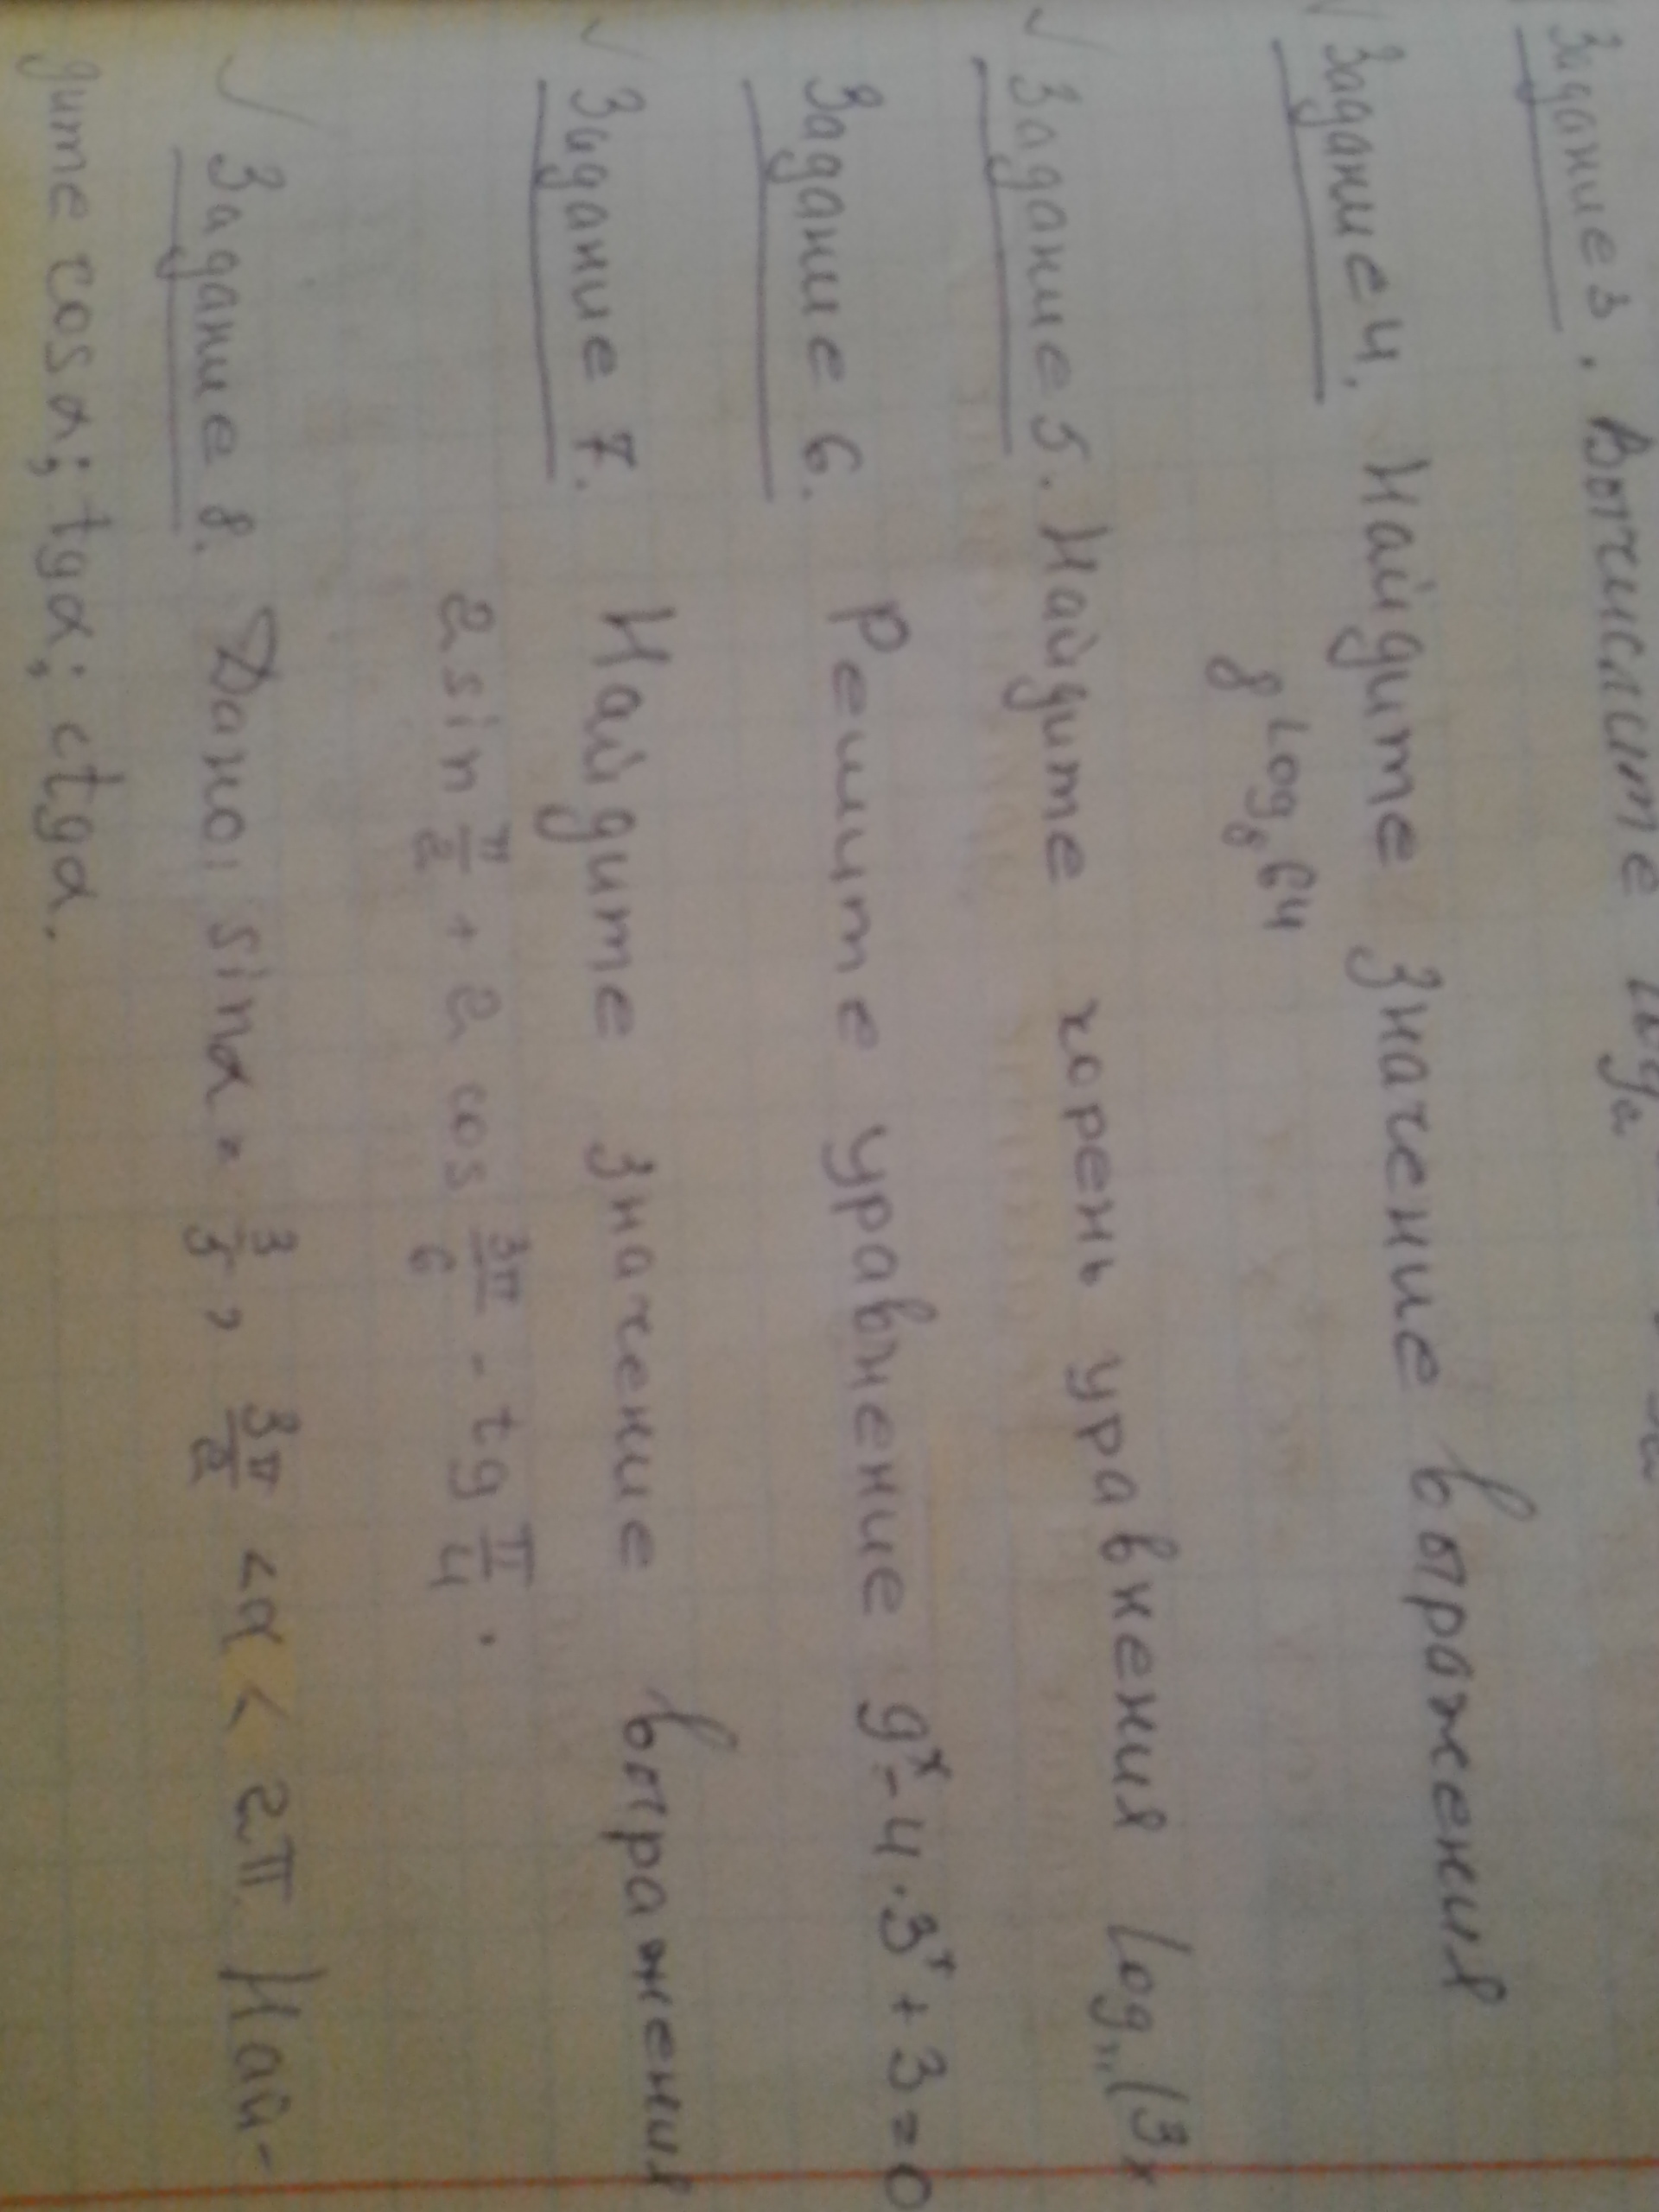 Задание 3. Вычислите log₂
Задание 4. Найдите значение выражения
8^log₈64
Задание 5. Найдите корень уравнения log (3x
Задание 6. Решите уравнение 9ˣ - 4 · 3ˣ + 3 = 0
Задание 7. Найдите значение выражения
2 sin π/2 + 2 cos 3π/6 - tg π/4.
Задание 8. Дано: sinα = 3/5, 3π/2 < α < 2π. Най-
дите cosα; tgα; ctgα.